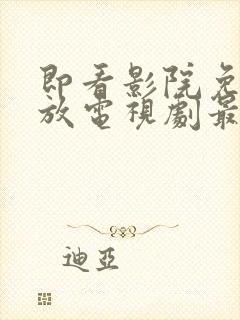 即看影院免
放電視劇最
迪亞